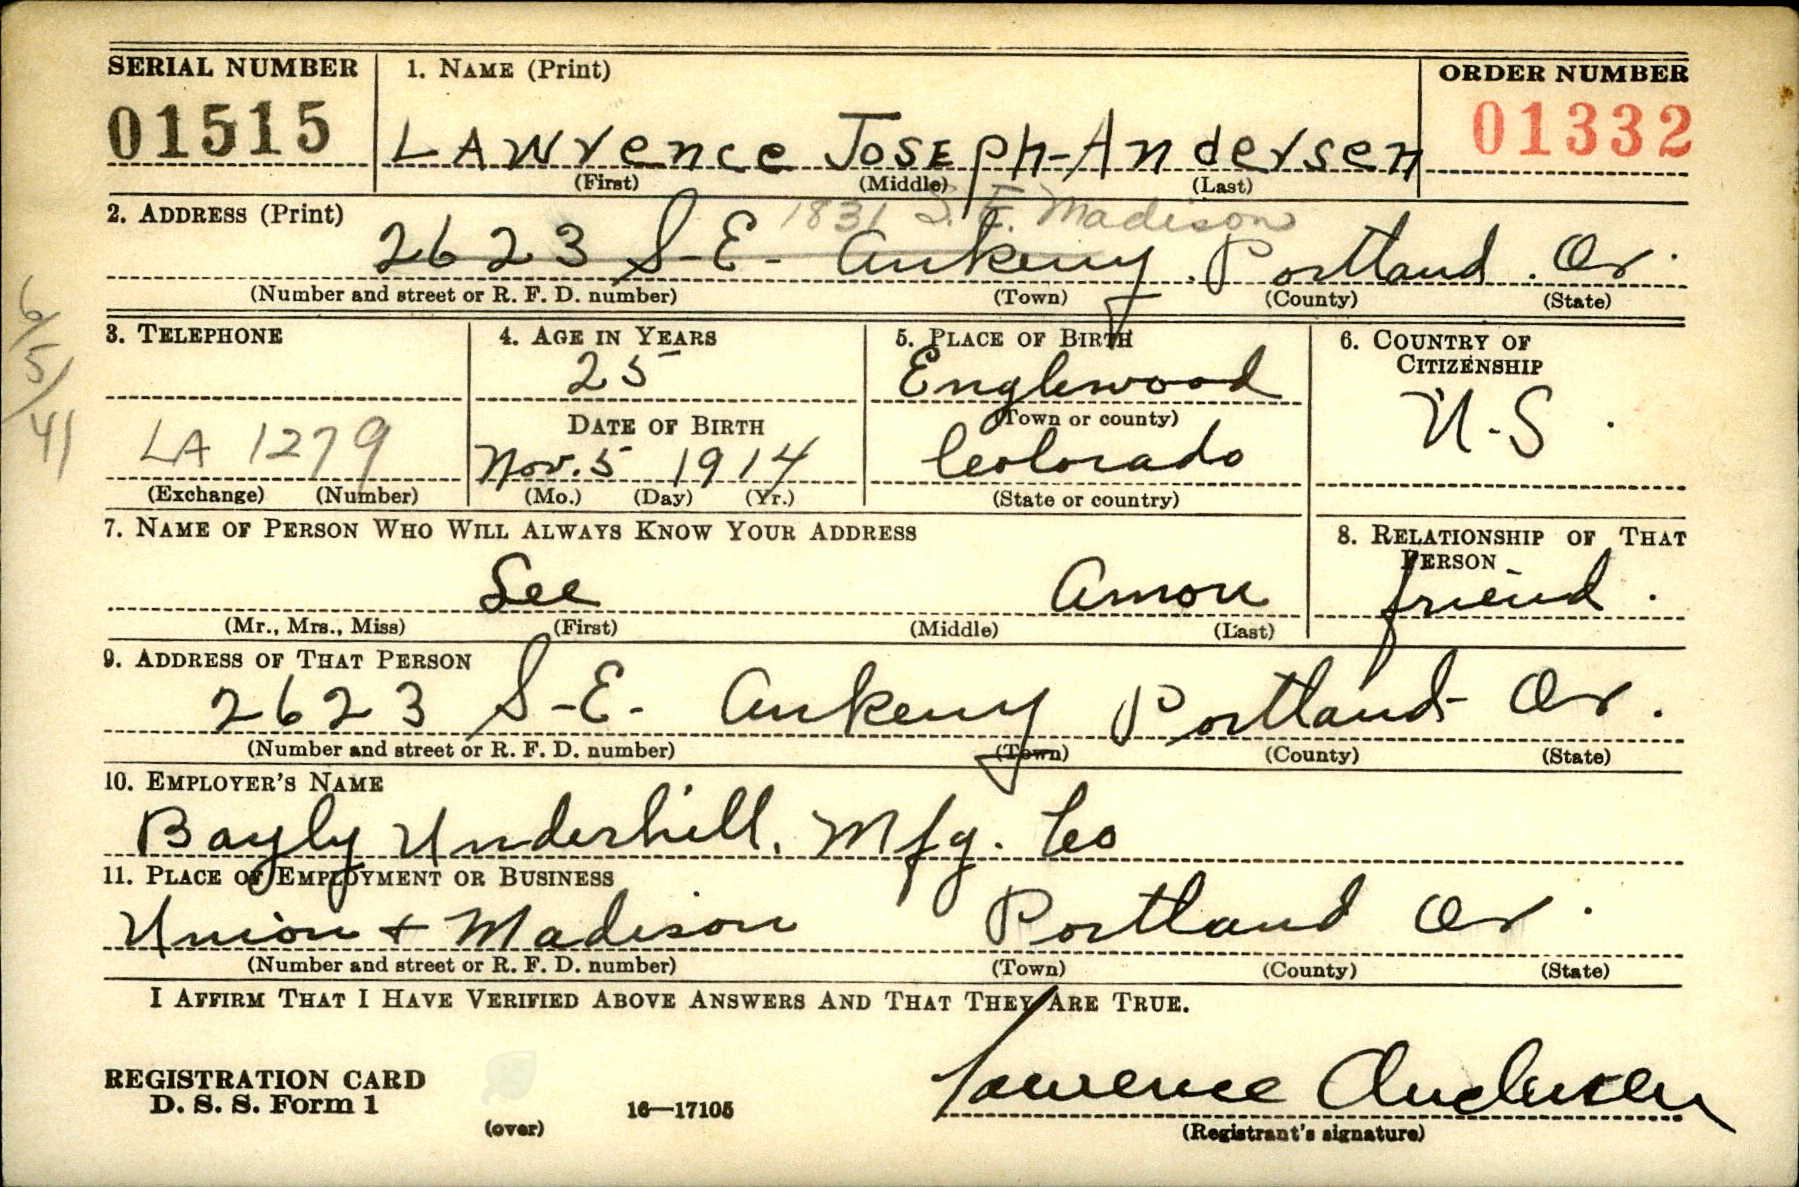 SERIAL NUMBER 1. NAME (Print) ORDER NUMBER
01515 LAWrence JOSEph-Andersen 01332
(First) (Middle) (Last)
1831 S.E. Madison
2. ADDRESS (Print)
2623 S-E- Ankeny. Portland. Or.
(Number and street or R. F. D. number) (Town) (County) (State)
6/5/41
3. TELEPHONE 4. AGE IN YEARS 5. PLACE OF BIRTH 6. COUNTRY OF
CITIZENSHIP
25 Englewood U.S.
DATE OF BIRTH (Town or county)
LA 1279 Nov. 5 1914 Colorado
(Exchange) (Number) (Mo.) (Day) (Yr.) (State or country)
7. NAME OF PERSON WHO WILL ALWAYS KNOW YOUR ADDRESS 8. RELATIONSHIP OF THAT
PERSON
Lee Amon friend.
(Mr., Mrs., Miss) (First) (Middle) (Last)
9. ADDRESS OF THAT PERSON
2623 S-E- Ankeny Portland- Or.
(Number and street or R. F. D. number) (Town) (County) (State)
10. EMPLOYER'S NAME
Bayly Underhill. Mfg. Co
11. PLACE OF EMPLOYMENT OR BUSINESS
Union + Madison Portland Or.
(Number and street or R. F. D. number) (Town) (County) (State)
I AFFIRM THAT I HAVE VERIFIED ABOVE ANSWERS AND THAT THEY ARE TRUE.
Lawrence Andersen
REGISTRATION CARD
D. S. S. Form 1 16—17105
(over) (Registrant's signature)